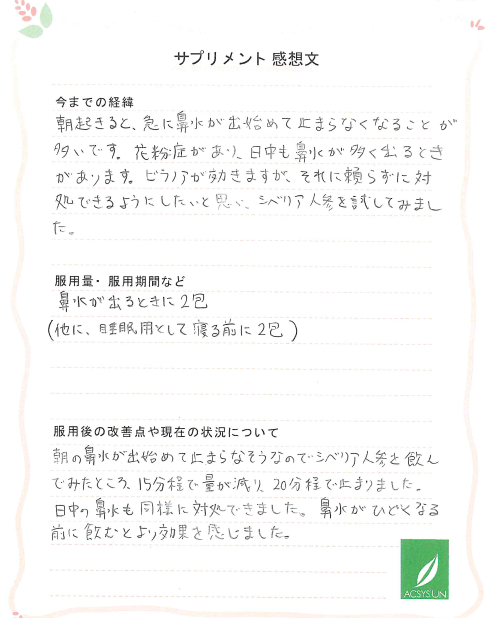 サプリメント 感想文
今までの経緯
朝起きると、急に鼻水が出始めて止まらなくなることが
多いです。花粉症があり、日中も鼻水が多く出るとき
があります。ビラノアが効きますが、それに頼らずに対
処できるようにしたいと思い、シベリア人参を試してみまし
た。
服用量・服用期間など
鼻水が出るときに2包
(他に、睡眠用として寝る前に2包)
服用後の改善点や現在の状況について
朝の鼻水が出始めて止まらなそうなのでシベリア人参を飲ん
でみたところ、15分程で量が減り、20分程で止まりました。
日中の鼻水も同様に対処できました。鼻水がひどくなる
前に飲むとより効果を感じました。
ACSYSUN